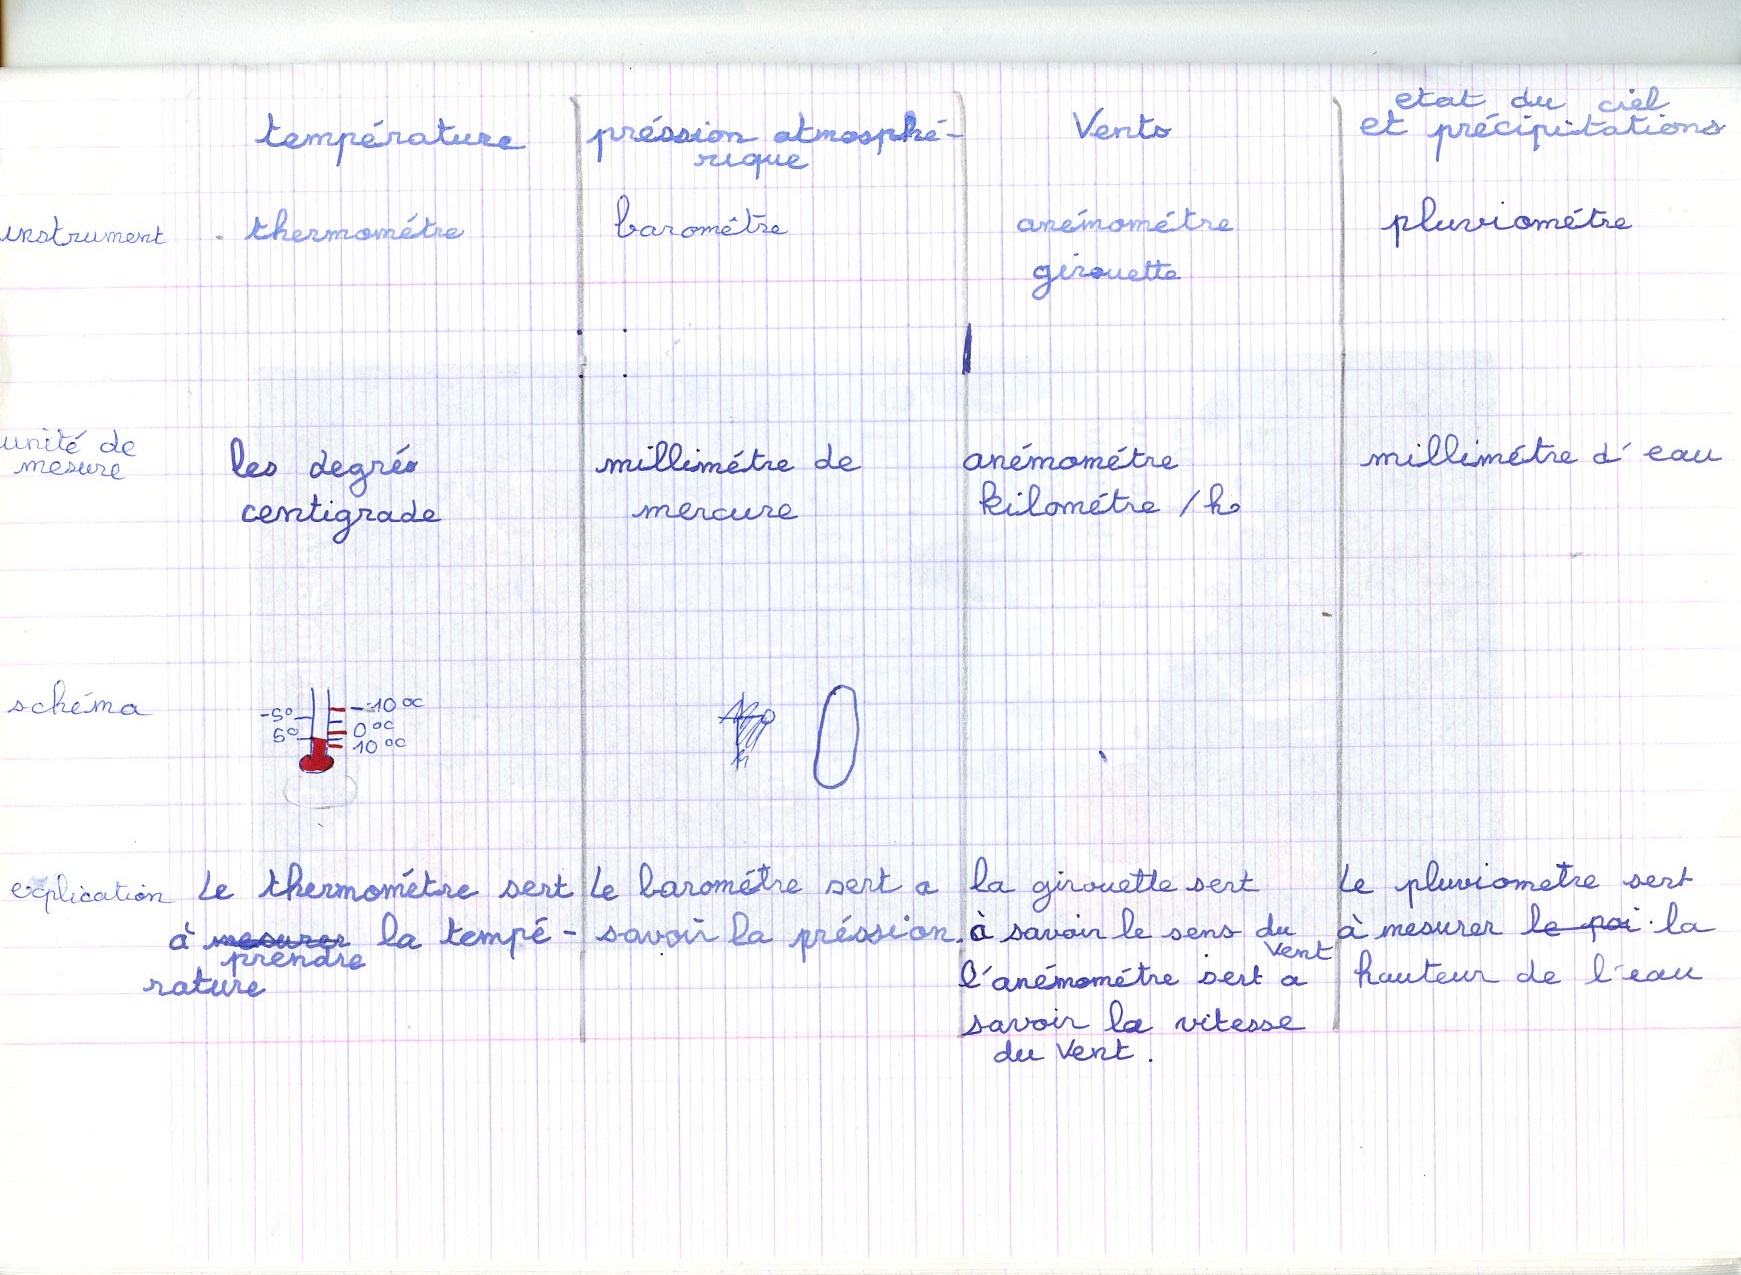 température
préssion atmosphé-
rique
Vents
etat du ciel
et précipitations
instrument
thermométre
barométre
anémométre
girouette
pluviométre
unité de
mesure
les degrés
centigrade
millimétre de
mercure
anémométre
kilométre / h
millimétre d'eau
schéma
-5°
5°
-10°C
0°C
10°C
explication
Le thermométre sert
à mesurer la tempé-
prendre
rature
Le barométre sert a
savoir la préssion.
la girouette sert
à savoir le sens du
Vent
l'anémométre sert a
savoir la vitesse
du Vent.
Le pluviometre sert
à mesurer le poi la
hauteur de l'eau